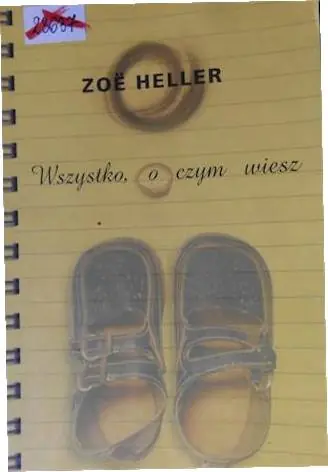 28657
ZOË HELLER
Wszystko, o czym wiesz